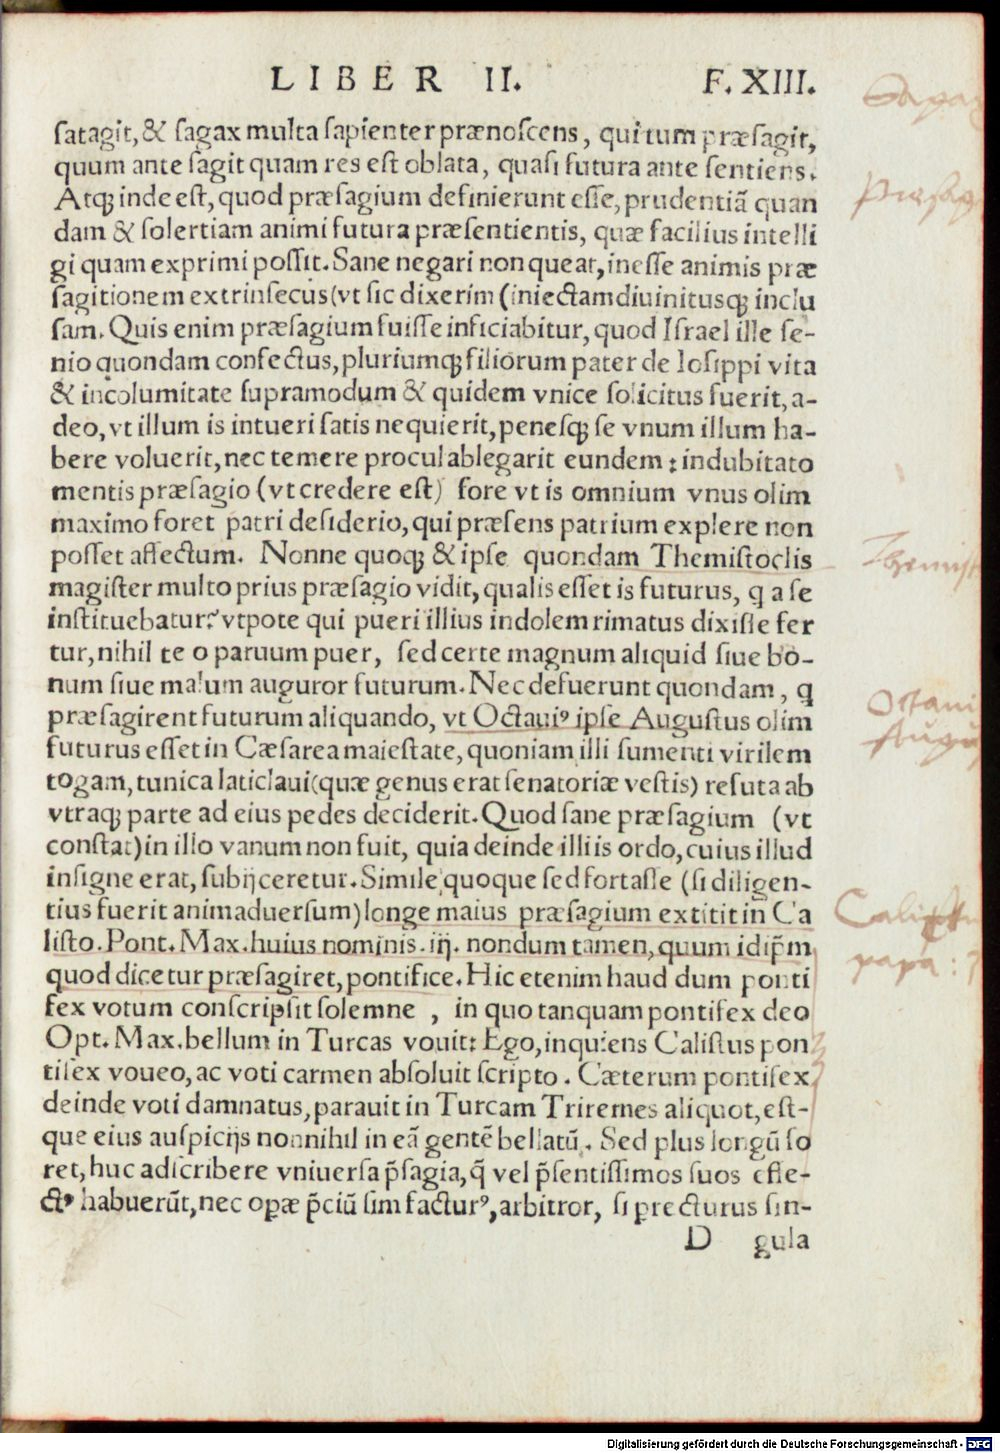 LIBER II. F. XIII.
satagit, & sagax multa sapienter prænoscens, qui tum præsagit,
quum ante sagit quam res est oblata, quasi futura ante sentiens.
Atqꝫ inde est, quod præsagium definierunt esse, prudentiã quan
dam & solertiam animi futura præsentientis, quæ facilius intelli
gi quam exprimi possit. Sane negari non queat, inesse animis præ
sagitionem extrinsecus (vt sic dixerim (iniectam diuinitusqꝫ inclu
sam. Quis enim præsagium fuisse inficiabitur, quod Israel ille se-
nio quondam confectus, pluriumqꝫ filiorum pater de Iosippi vita
& incolumitate supramodum & quidem vnice solicitus fuerit, a-
deo, vt illum is intueri satis nequierit, penesqꝫ se vnum illum ha-
bere voluerit, nec temere procul ablegarit eundem: indubitato
mentis præsagio (vt credere est) fore vt is omnium vnus olim
maximo foret patri desiderio, qui præsens patrium explere non
posset affectum. Nonne quoqꝫ & ipse quondam Themistoclis
magister multo prius præsagio vidit, qualis esset is futurus, q a se
instituebatur? vtpote qui pueri illius indolem rimatus dixisse fer
tur, nihil te o paruum puer, sed certe magnum aliquid siue bo-
num siue malum auguror futurum. Nec defuerunt quondam, q
præsagirent futurum aliquando, vt Octauiꝰ ipse Augustus olim
futurus esset in Cæsarea maiestate, quoniam illi sumenti virilem
togam, tunica laticlaui (quæ genus erat senatoriæ vestis) resuta ab
vtraqꝫ parte ad eius pedes deciderit. Quod sane præsagium (vt
constat) in illo vanum non fuit, quia deinde illi is ordo, cuius illud
insigne erat, subijceretur. Simile quoque sed fortasse (si diligen-
tius fuerit animaduersum) longe maius præsagium extitit in Ca
listo. Pont. Max. huius nominis. iij. nondum tamen, quum id ip̃m
quod dicetur præsagiret, pontifice. Hic etenim haud dum ponti
fex votum conscripsit solemne, in quo tanquam pontifex deo
Opt. Max. bellum in Turcas vouit: Ego, inquiens Calistus pon
tifex voueo, ac voti carmen absoluit scripto. Cæterum pontifex
deinde voti damnatus, parauit in Turcam Triremes aliquot, est-
que eius auspicijs nonnihil in eã gentẽ bellatũ. Sed plus longũ fo
ret, huc adscribere vniuersa p̃sagia, q̃ vel p̃sentissimos suos effe-
ctꝰ habuerũt, nec opæ p̃ciũ sim facturꝰ, arbitror, si precturus sin-
D gula
Sagax
Præsag
Themist
Octaui
August
Calist
papa: 3
Digitalisierung gefördert durch die Deutsche Forschungsgemeinschaft - DFG